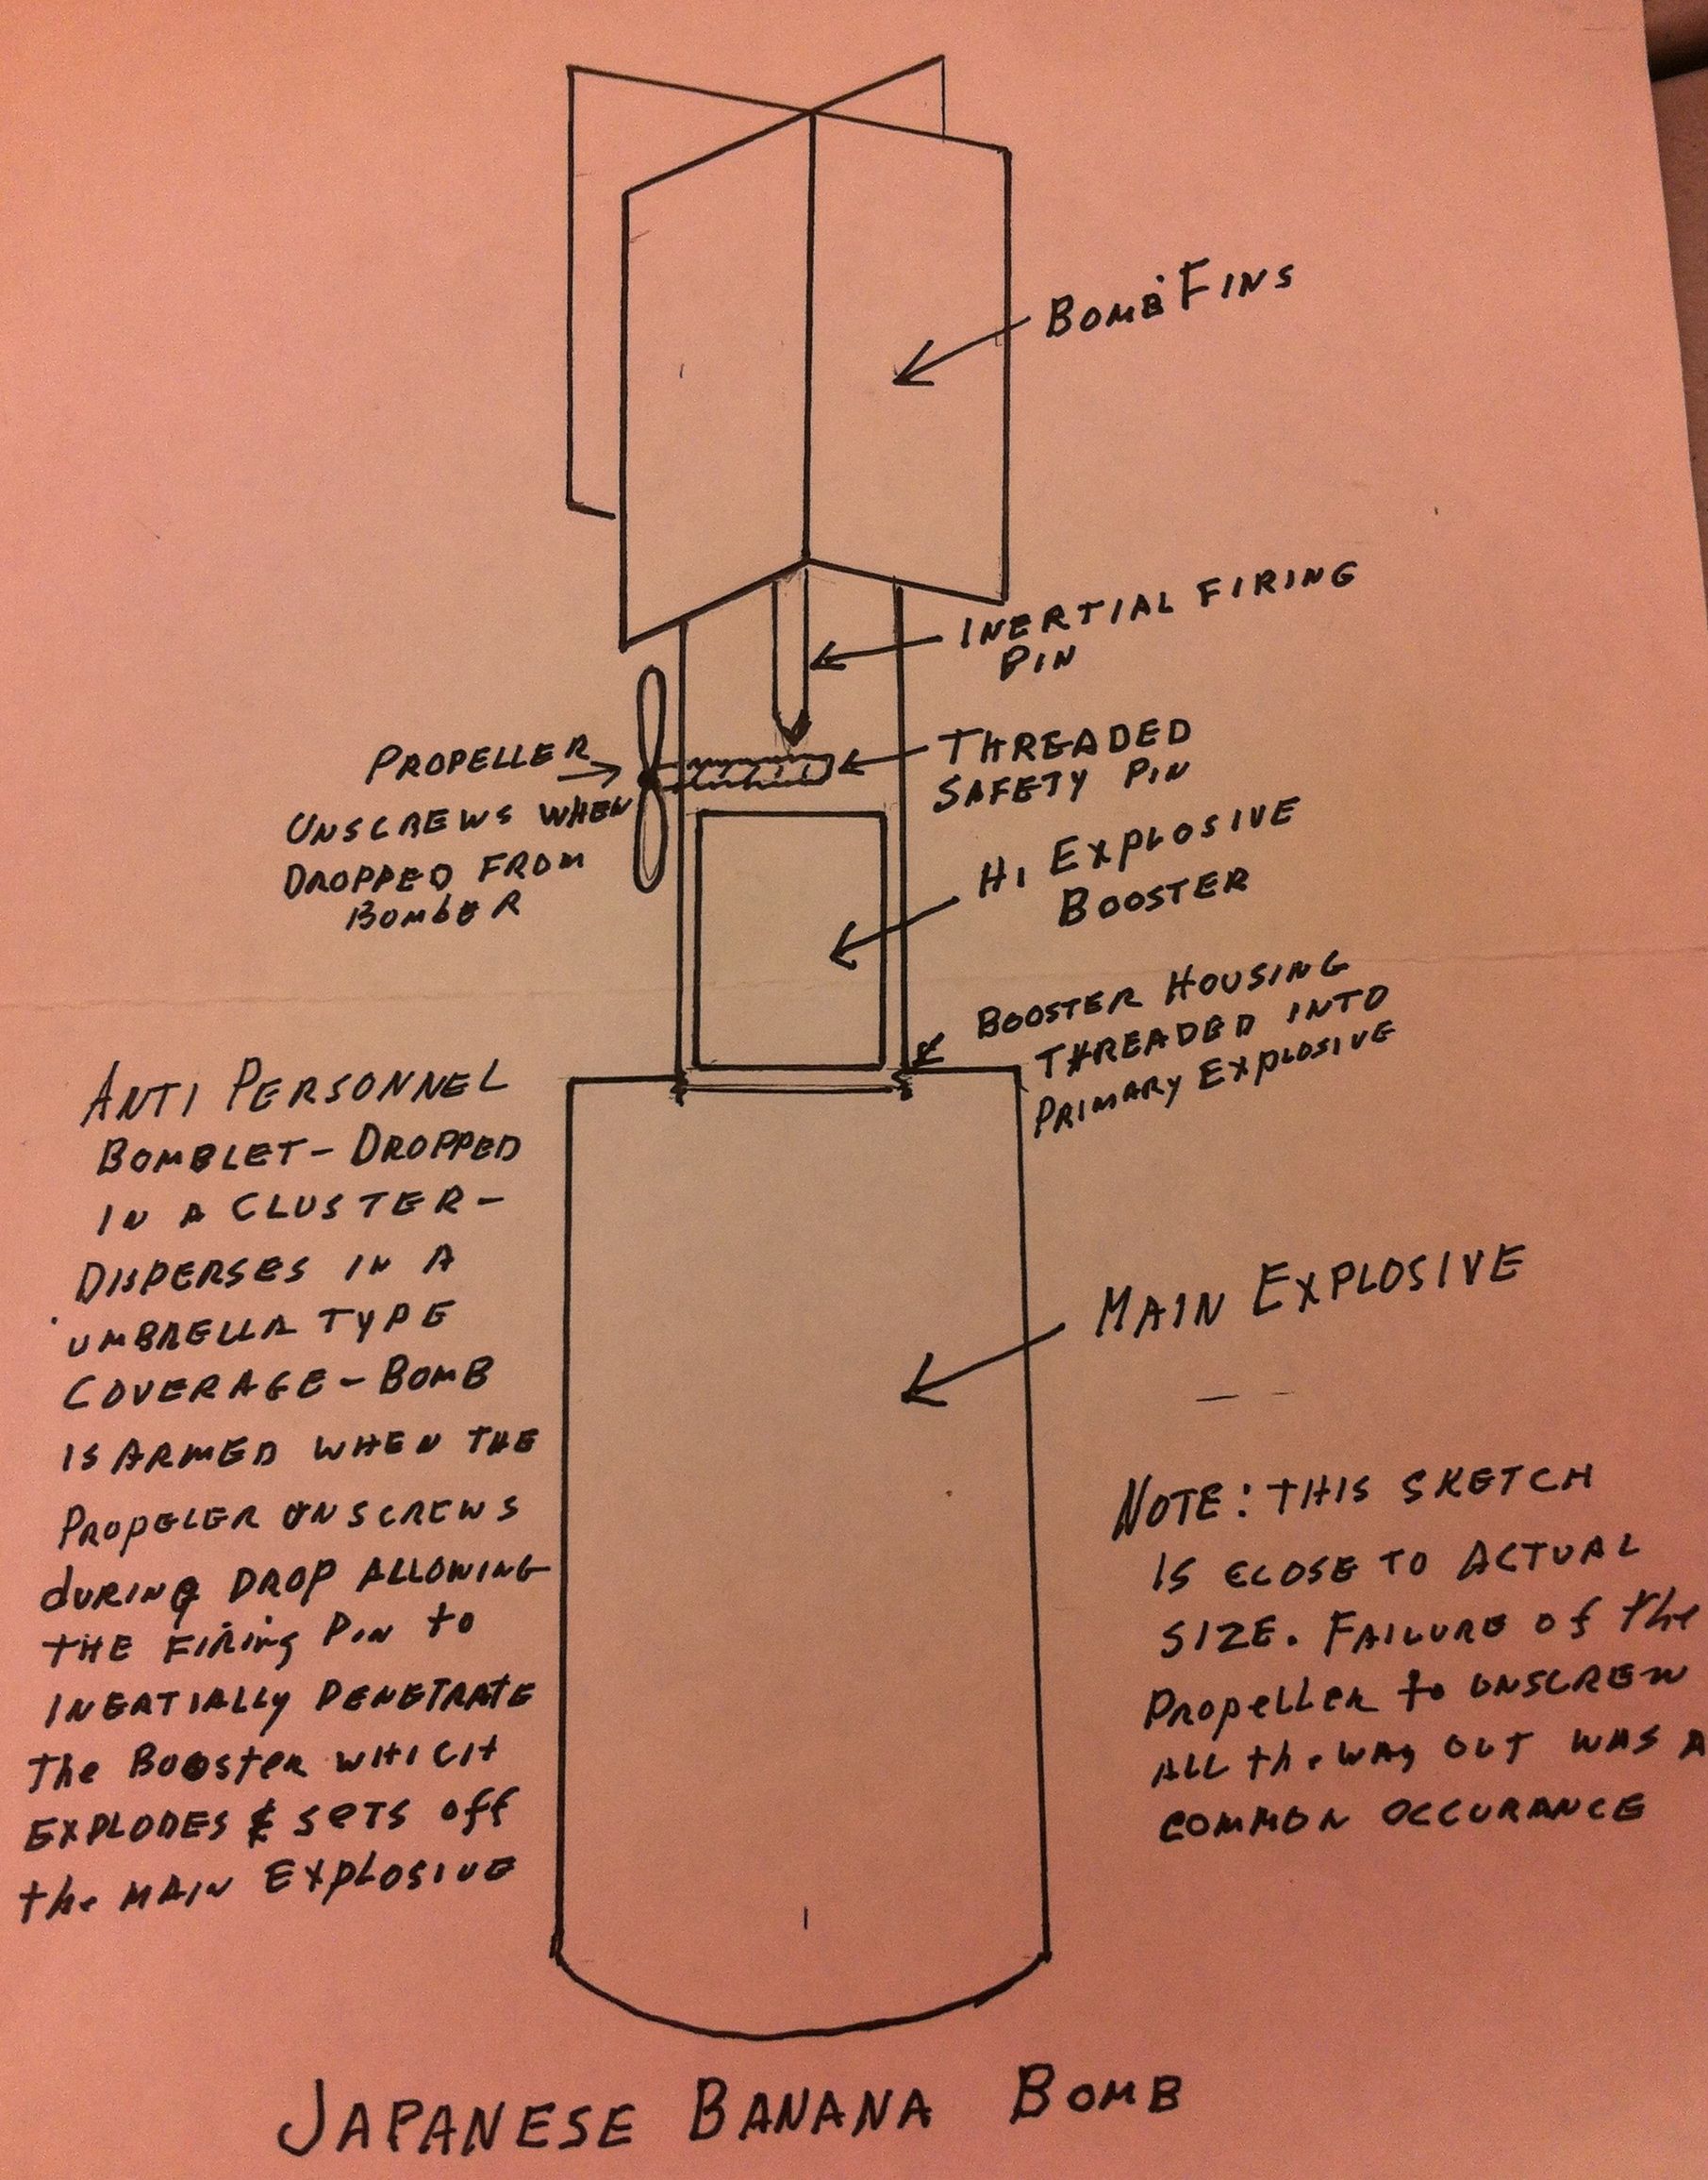 BOMB FINS
INERTIAL FIRING
PIN
PROPELLER
UNSCREWS WHEN
DROPPED FROM
BOMBER
THREADED
SAFETY PIN
HI EXPLOSIVE
BOOSTER
BOOSTER HOUSING
THREADED INTO
PRIMARY EXPLOSIVE
ANTI PERSONNEL
BOMBLET - DROPPED
IN A CLUSTER -
DISPERSES IN A
UMBRELLA TYPE
COVERAGE - BOMB
IS ARMED WHEN THE
PROPELER UNSCREWS
DURING DROP ALLOWING
THE FIRING PIN TO
INERTIALLY PENETRATE
THE BOOSTER WHICH
EXPLODES & SETS OFF
THE MAIN EXPLOSIVE
MAIN EXPLOSIVE
NOTE: THIS SKETCH
IS CLOSE TO ACTUAL
SIZE. FAILURE OF THE
PROPELLER TO UNSCREW
ALL THE WAY OUT WAS A
COMMON OCCURANCE
JAPANESE BANANA BOMB